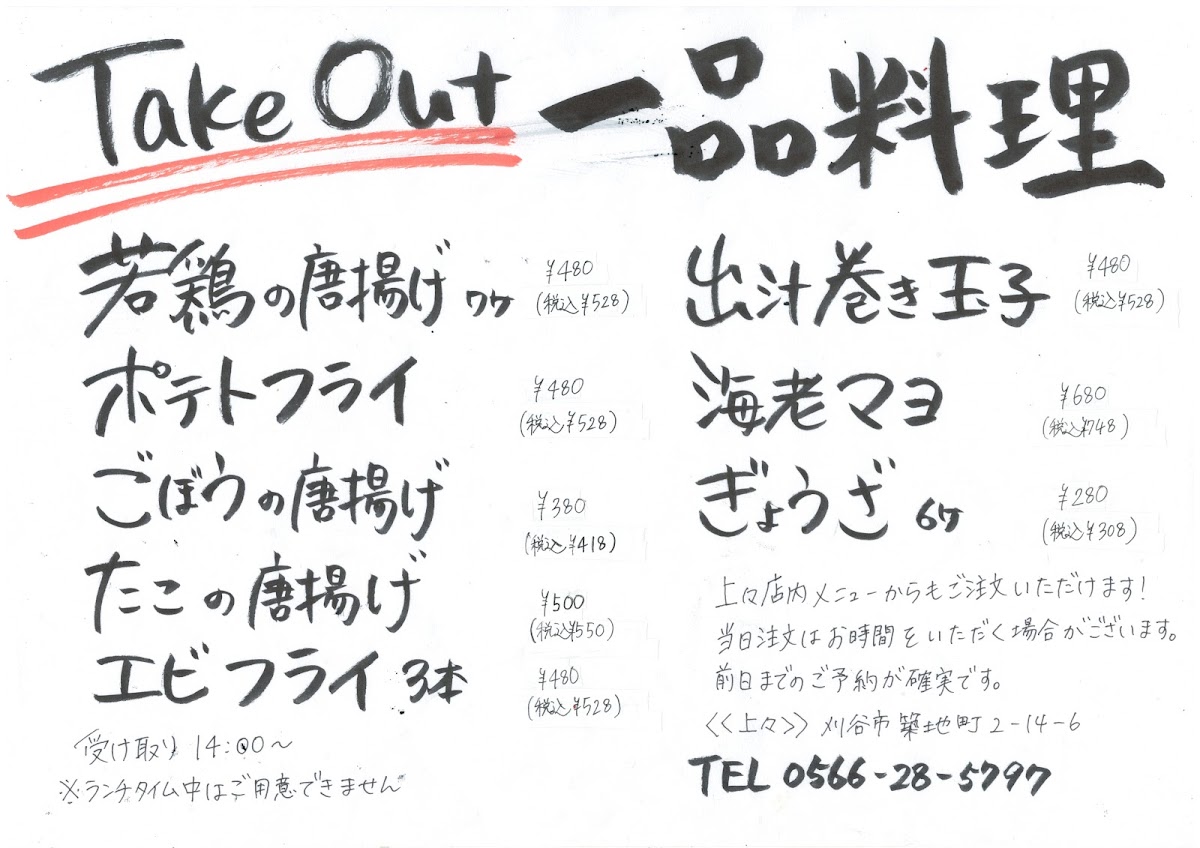 Take Out 一品料理
若鶏の唐揚げ 7ケ ¥480
(税込¥528)
ポテトフライ ¥480
(税込¥528)
ごぼうの唐揚げ ¥380
(税込¥418)
たこの唐揚げ ¥500
(税込¥550)
エビフライ 3本 ¥480
(税込¥528)
受け取り 14:00〜
※ランチタイム中はご用意できません
出汁巻き玉子 ¥480
(税込¥528)
海老マヨ ¥680
(税込¥748)
ぎょうざ 6ケ ¥280
(税込¥308)
上々店内メニューからもご注文いただけます!
当日注文はお時間をいただく場合がございます。
前日までのご予約が確実です。
<<上々>> 刈谷市築地町2-14-6
TEL 0566-28-5797